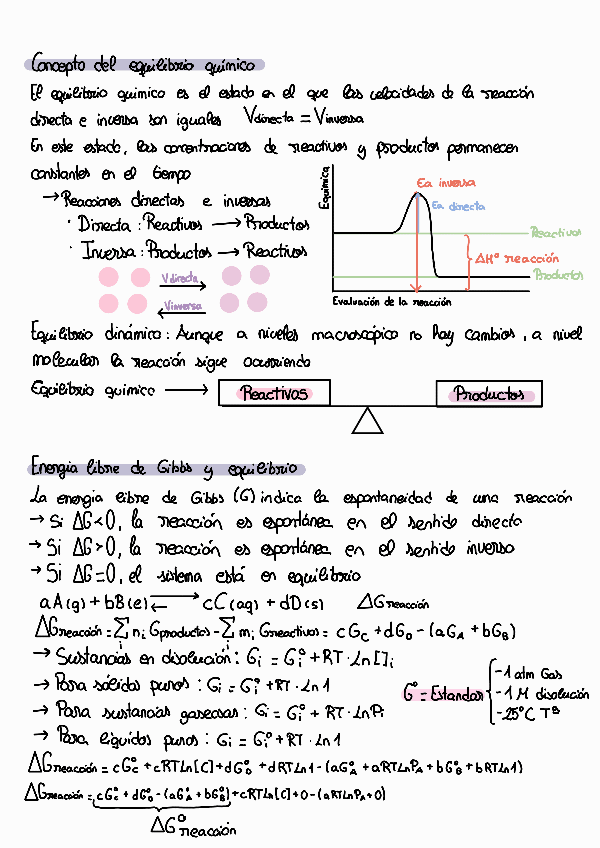 Concepto del equilibrio químico
El equilibrio químico es el estado en el que las velocidades de la reacción
directa e inversa son iguales Vdirecta = Vinversa
En este estado, las concentraciones de reactivos y productos permanecen
constantes en el tiempo
→ Reacciones directas e inversas
· Directa : Reactivos → Productos
· Inversa : Productos → Reactivos
Vdirecta
Vinversa
Equímica
Ea inversa
Ea directa
Reactivos
ΔHº reacción
Productos
Evaluación de la reacción
Equilibrio dinámico : Aunque a niveles macroscópico no hay cambios, a nivel
molecular la reacción sigue ocurriendo
Equilibrio químico → Reactivos Productos
Energia libre de Gibbs y equilibrio
La energia libre de Gibbs (G) indica la espontaneidad de una reacción
→ Si ΔG<0, la reacción es espontánea en el sentido directo
→ Si ΔG>0, la reacción es espontánea en el sentido inverso
→ Si ΔG=0, el sistema está en equilibrio
aA(g) + bB(e) ⇄ cC(aq) + dD(s) ΔGreacción
ΔGreacción = ∑i ni Gproductos - ∑i mi Greactivos = cGC + dGD - (aGA + bGB)
→ Sustancias en disolución : Gi = Giº + RT · Ln[]i
→ Para sólidos puros : Gi = Giº + RT · Ln1
→ Para sustancias gaseosas : Gi = Giº + RT · LnPi
→ Para líquidos puros : Gi = Giº + RT · Ln1
Gº = Estandar
-1 atm Gas
-1 M disolución
-25ºC Tª
ΔGreacción = cGCº + cRTLn[C] + dGDº + dRTLn1 - (aGAº + aRTLnPA + bGBº + bRTLn1)
ΔGreacción = cGCº + dGDº - (aGAº + bGBº) + cRTLn[C] + 0 - (aRTLnPA + 0)
ΔGºreacción